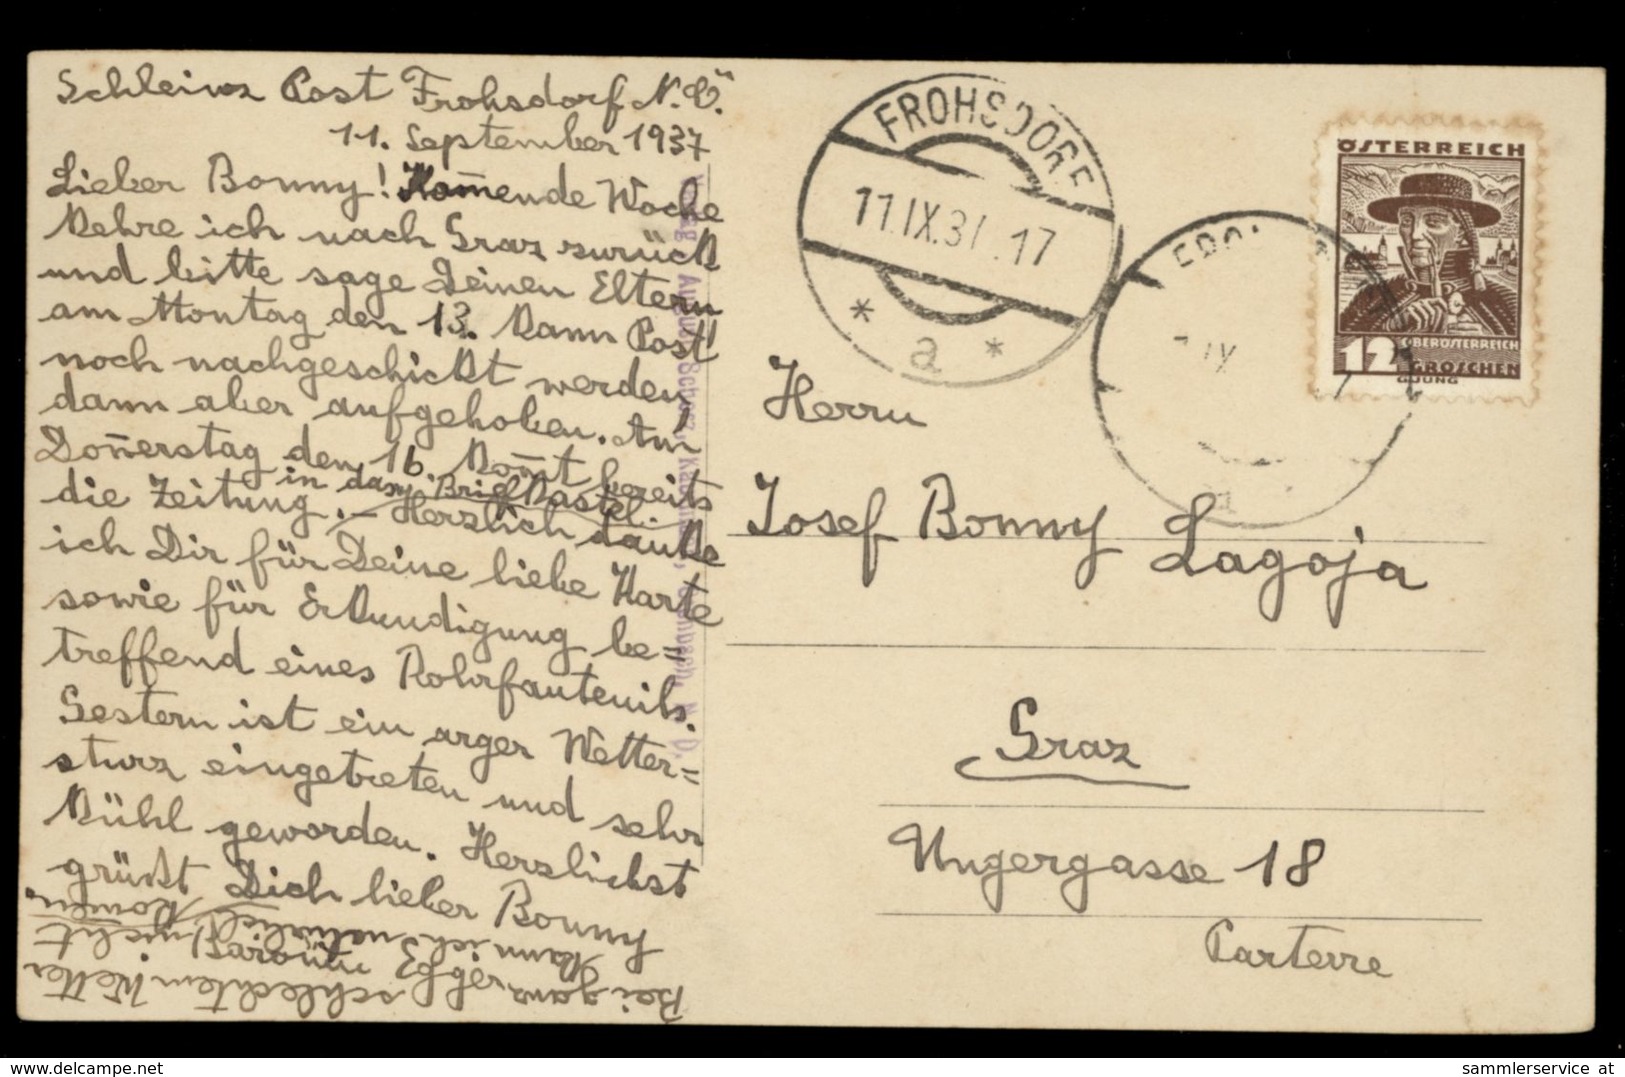 Schleinz Post Frohsdorf N.Ö.
11. September 1937
Lieber Bonny! Kom̅ende Woche
kehre ich nach Graz zurück
und bitte sage Deinen Eltern
am Montag den 13. kann Post
noch nachgeschickt werden,
dann aber aufgehoben. Am
Don̅erstag den 16. kom̅t bereits
die Zeitung
in den Briefkasten
. – Herzlich danke
ich Dir für Deine liebe Karte
sowie für Erkundigung be=
treffend eines Rohrfauteuils.
Gestern ist ein arger Wetter=
sturz eingetreten und sehr
kühl geworden. Herzlichst
grüßt Dich lieber Bonny
Bei ganz schlechtem Wetter
kann ich natürlich nicht
kom̅en.
FROHSDORF
11.IX.37.17
* a *
ÖSTERREICH
OBERÖSTERREICH
12 GROSCHEN
GJUNG
Herrn
Josef Bonny Lagoja
Graz
Ungergasse 18
Parterre
sammlerservice at